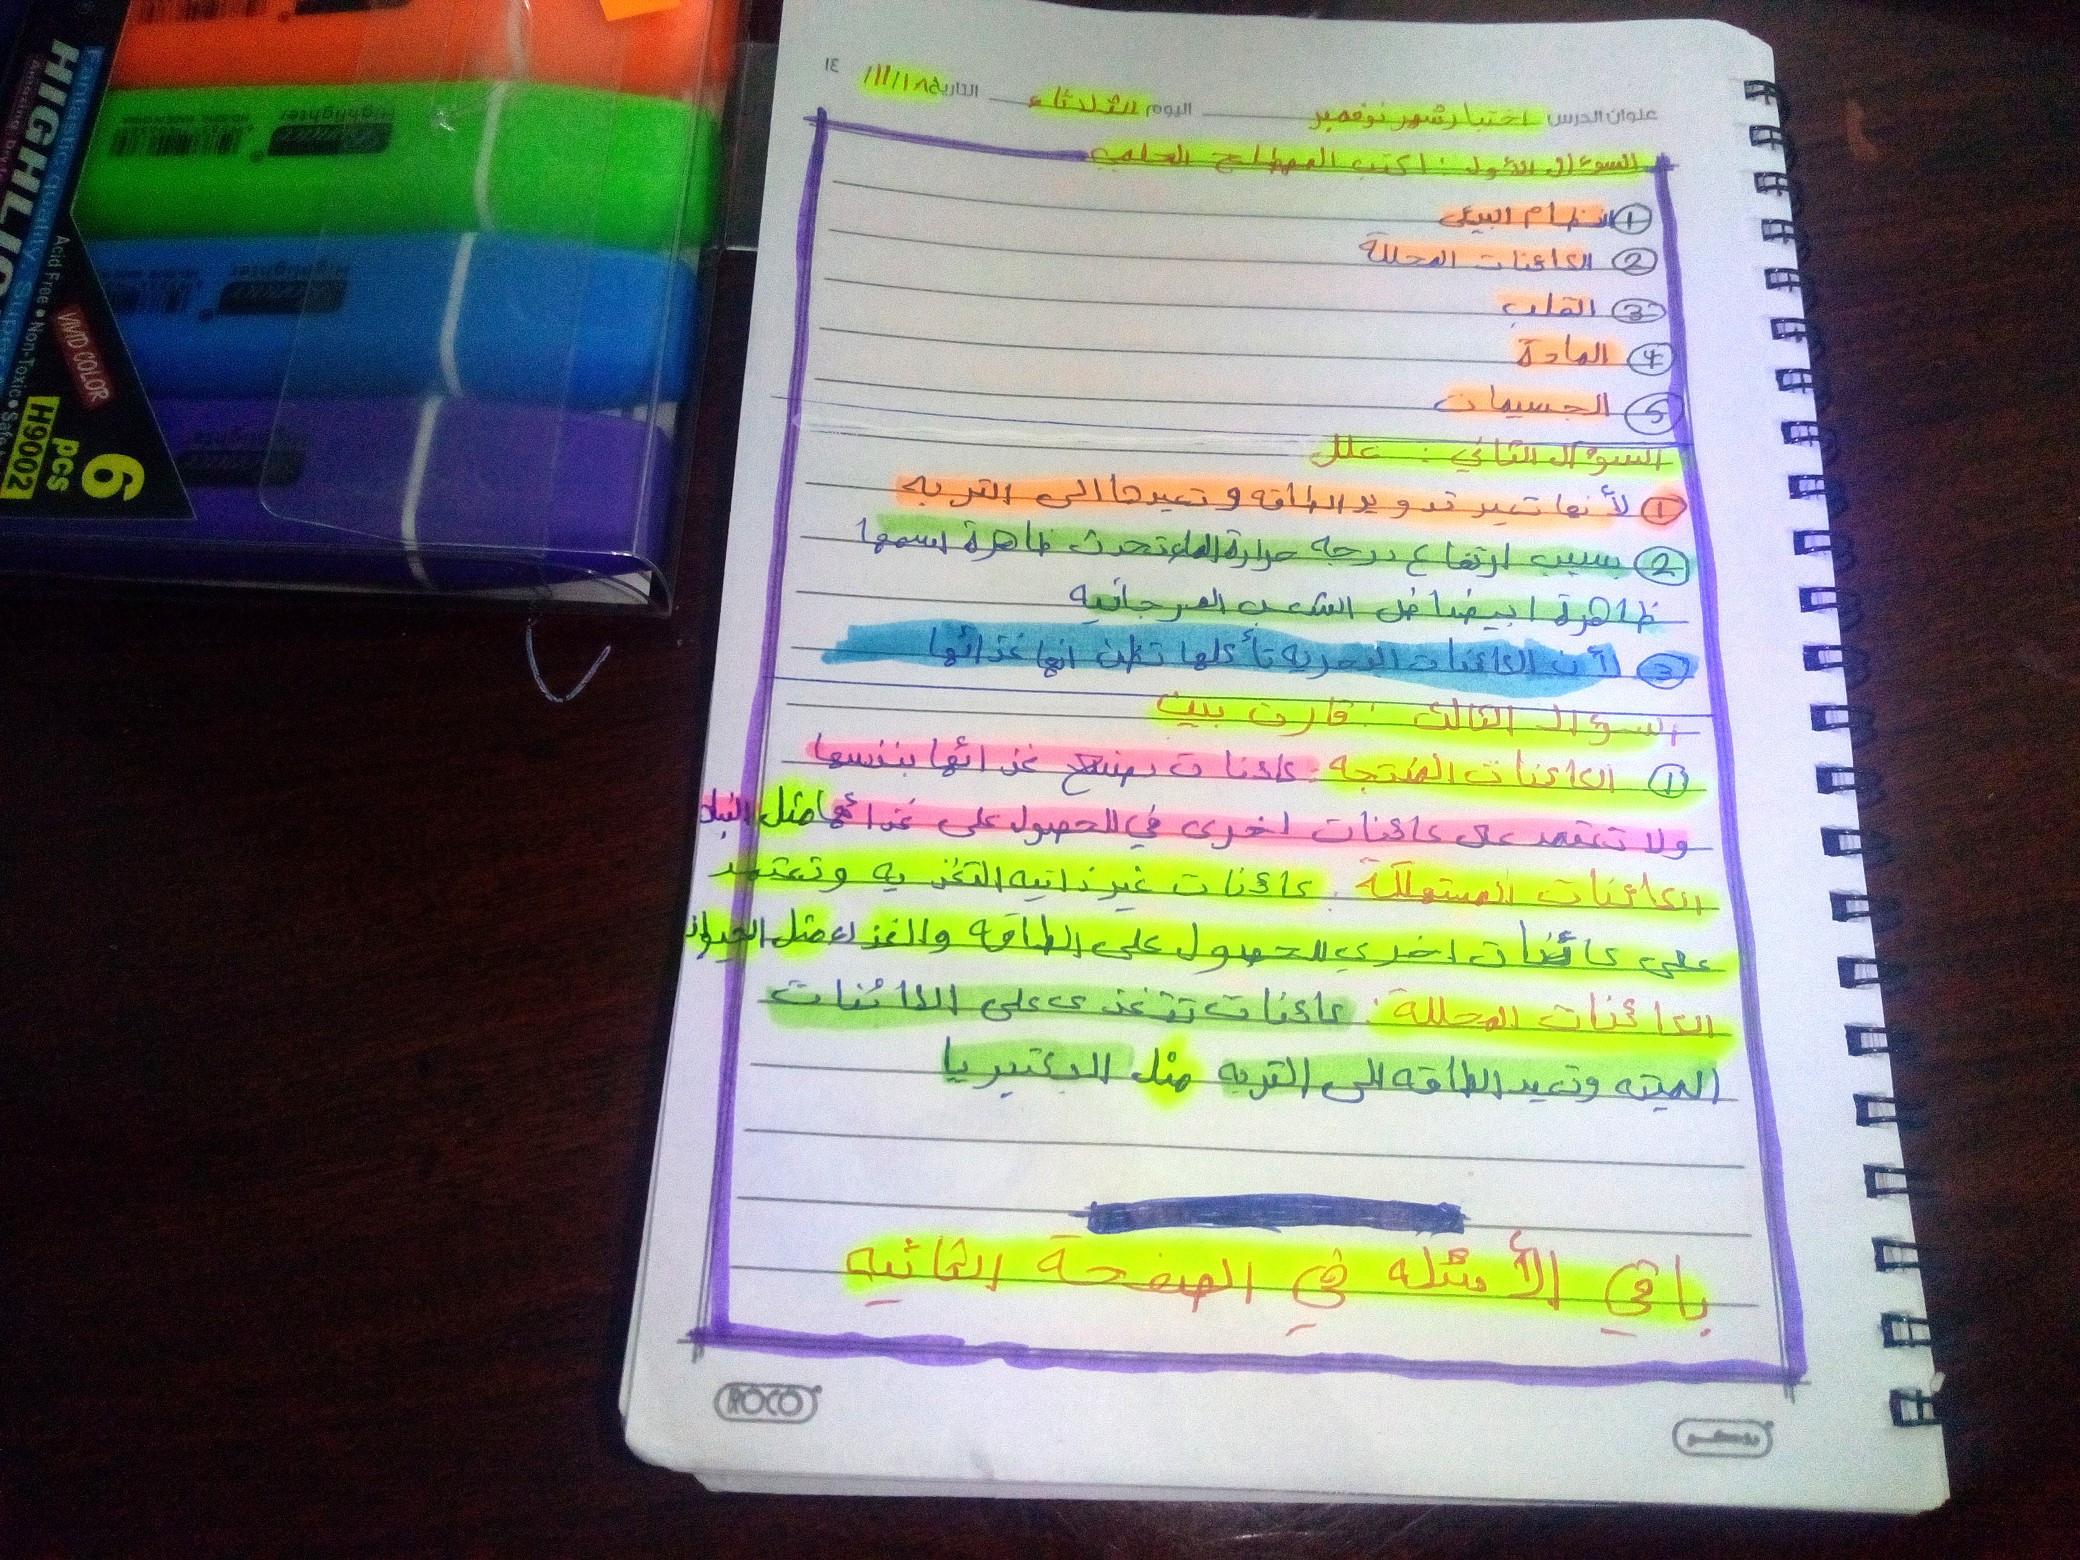 ١٤
عنوان الدرس اختبار شهر نوفمبر اليوم الثلاثاء التاريخ
السؤال الأول : اكتب المصطلح العلمي
① النظام البيئي
② الكائنات المحللة
③ القلب
④ المادة
⑤ الجسيمات
السؤال الثاني : علل
① لأنها تعيد تدوير الطاقه وتعيدها الى التربه
② بسبب ارتفاع درجه حرارة الماء تحدث ظاهرة اسمها
ظاهرة ابيضاض الشعب المرجانيه
③ لأن الكائنات البحرية تأكلها تظن انها غذائها
السؤال الثالث : قارن بين
① الكائنات المنتجه : كائنات تصنع غذائها بنفسها
ولا تعتمد على كائنات اخرى في الحصول على غذائها مثل النبات
الكائنات المستهلكة : كائنات غير ذاتيه التغذيه وتعتمد
على كائنات اخرى للحصول على الطاقه والغذاء مثل الحيوان
الكائنات المحللة : كائنات تتغذى على الكائنات
الميته وتعيد الطاقه الى التربه مثل البكتيريا
باقي الأسئله في الصفحة الثانيه
ROCO
HIGHLIG
Fantastic quality, Super
Acid Free • Non-Toxic • Safe
VIVID COLOR
6
pcs
H9002
Highlighter
Highlighter
Highlighter